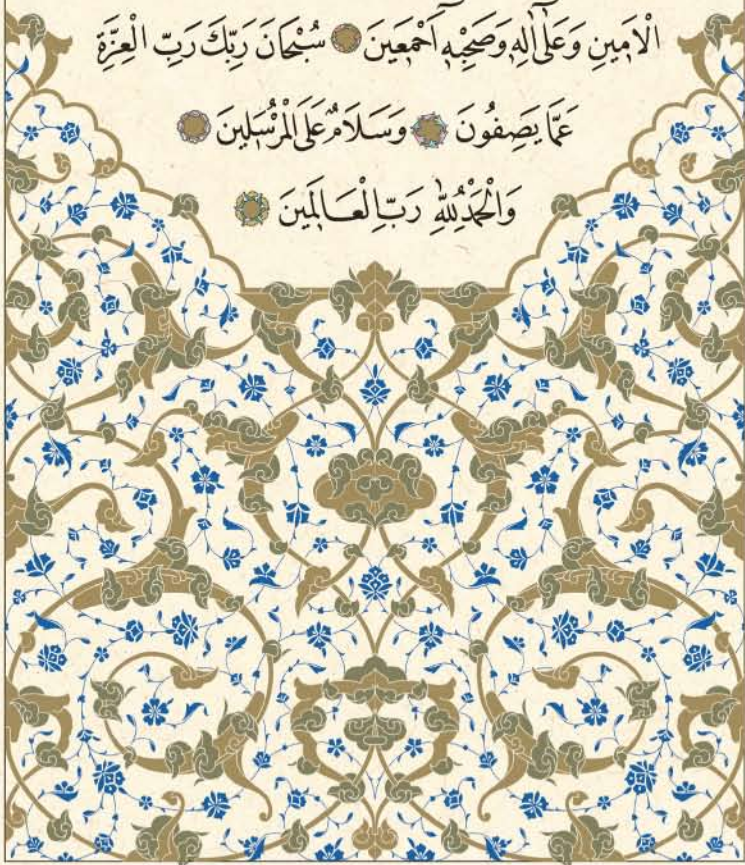 الْاَمٖينِ وَعَلٰٓى اٰلِهٖ وَصَحْبِهٖٓ اَجْمَعٖينَ سُبْحَانَ رَبِّكَ رَبِّ الْعِزَّةِ
عَمَّا يَصِفُونَ وَسَلَامٌ عَلَى الْمُرْسَلٖينَ
وَالْحَمْدُ لِلّٰهِ رَبِّ الْعَالَمٖينَ